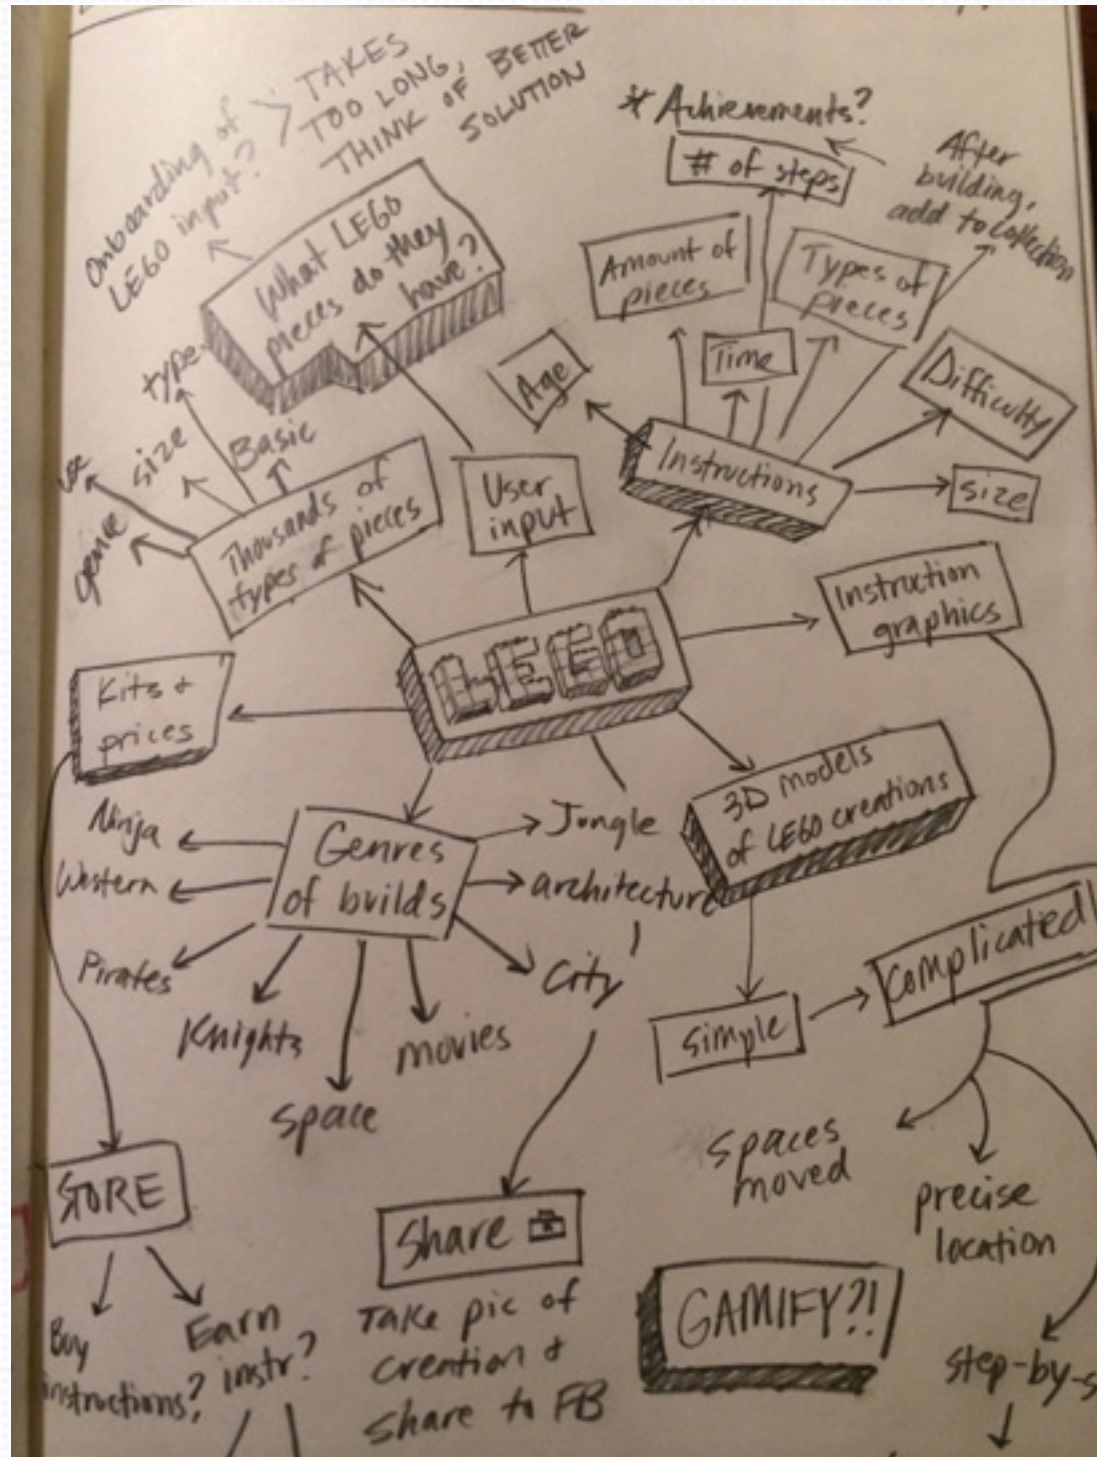 Onboarding of
LEGO input?
> TAKES
TOO LONG,
THINK OF BETTER
SOLUTION
* Achievements?
# of steps
After
building,
add to collection
What LEGO
pieces do they
have?
Amount of
pieces
Types of
pieces
Time
Age
Difficulty
type
size
Basic
use
genre
Thousands of
types of pieces
User
input
Instructions
size
LEGO
Instruction
graphics
Kits +
prices
3D models
of LEGO creations
Genres
of builds
Ninja
Western
Pirates
Knights
space
movies
City
architecture
Jungle
Simple
Complicated
spaces
moved
precise
location
step-by-s
STORE
Buy
instructions?
Earn
instr?
Share
Take pic of
creation +
share to FB
GAMIFY?!